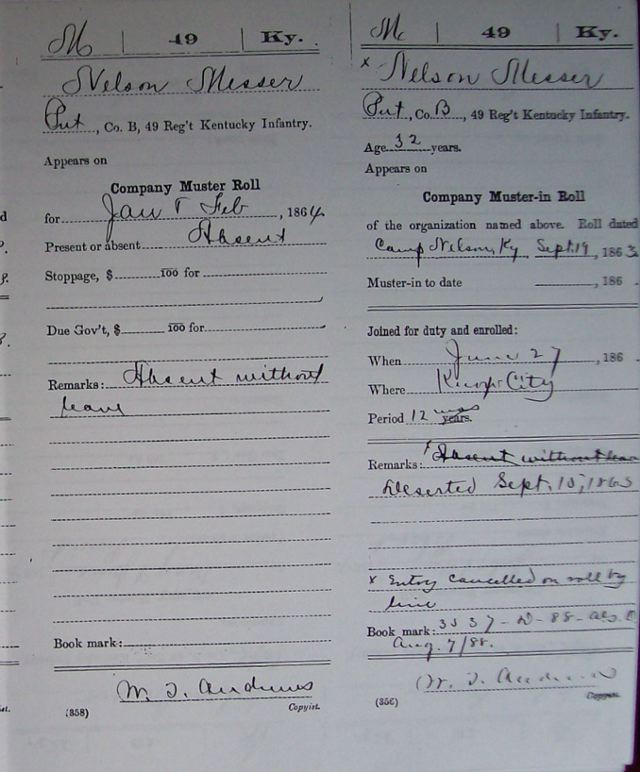 M | 49 | Ky.
Nelson Messer
Pvt, Co. B, 49 Reg't Kentucky Infantry.
Appears on
Company Muster Roll
for Jan & Feb, 1864.
Present or absent Absent
Stoppage, $ 100 for
Due Gov't, $ 100 for
Remarks: Absent without
leave
Book mark:
W. T. Andrews
(358) Copyist.
M | 49 | Ky.
x Nelson Messer
Pvt, Co. B, 49 Reg't Kentucky Infantry.
Age 32 years.
Appears on
Company Muster-in Roll
of the organization named above. Roll dated
Camp Nelson, Ky Sept. 19, 1863
Muster-in to date , 186 .
Joined for duty and enrolled:
When June 27, 186
Where City
Period 12 mos years.
Remarks: x Absent without leave
Deserted Sept. 15, 1863
x Entry cancelled on roll by
line
Book mark: 3537-D-88-
Aug. 7/88.
W. T. Andrews
(356) Copyist.
d
st.